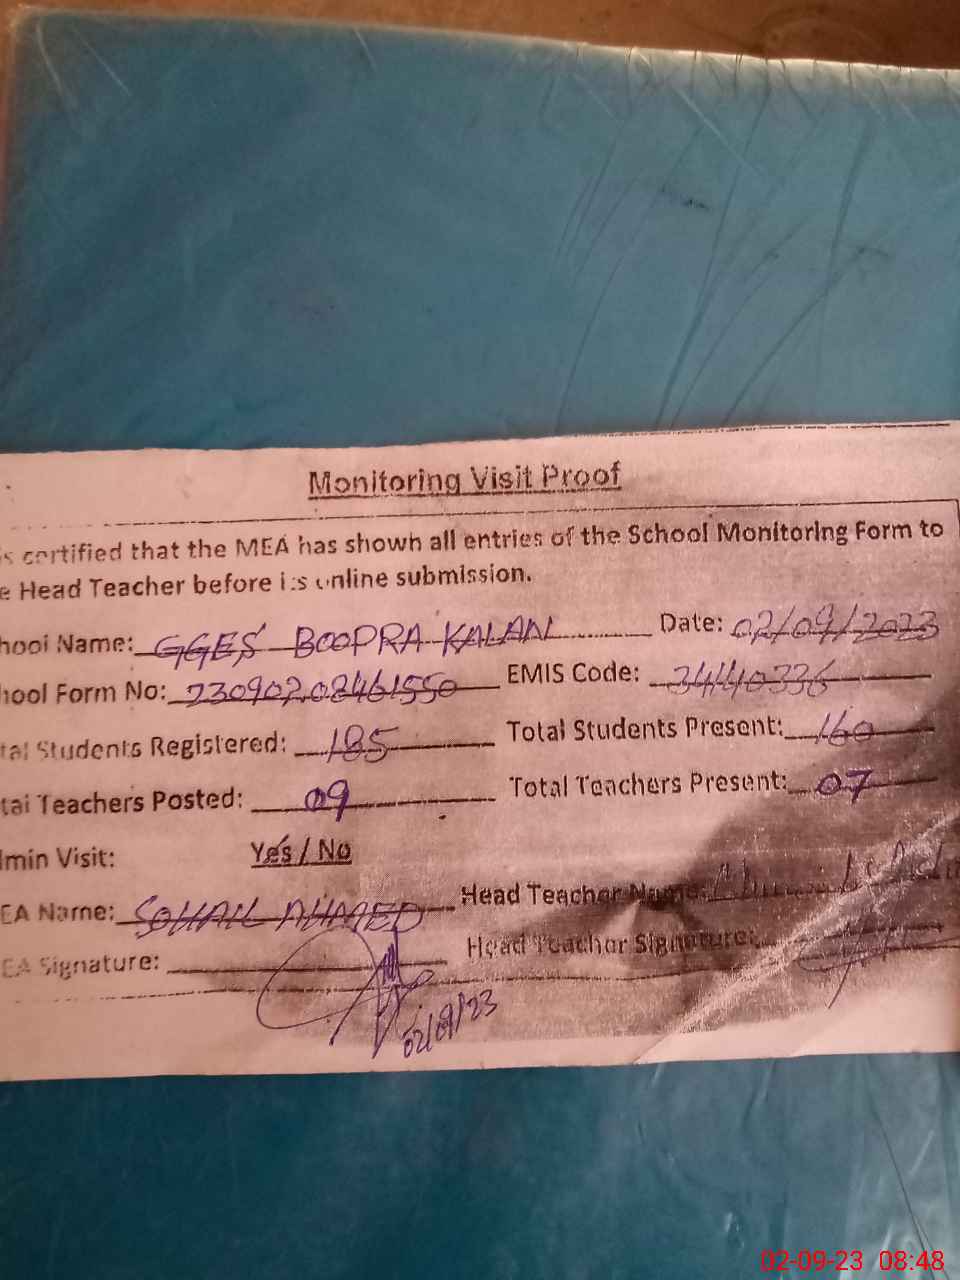 Monitoring Visit Proof
s certified that the MEA has shown all entries of the School Monitoring Form to
e Head Teacher before its online submission.
hool Name: GGES BOOPRA KALAN Date: 02/09/2023
hool Form No: 23090208461550 EMIS Code: 34440336
tal Students Registered: 185 Total Students Present: 160
tal Teachers Posted: 09 Total Teachers Present: 07
lmin Visit: Yes / No
EA Name: SOHAIL AHMED Head Teacher Name:
EA Signature: Head Teacher Signature:
02/09/23
02-09-23 08:48